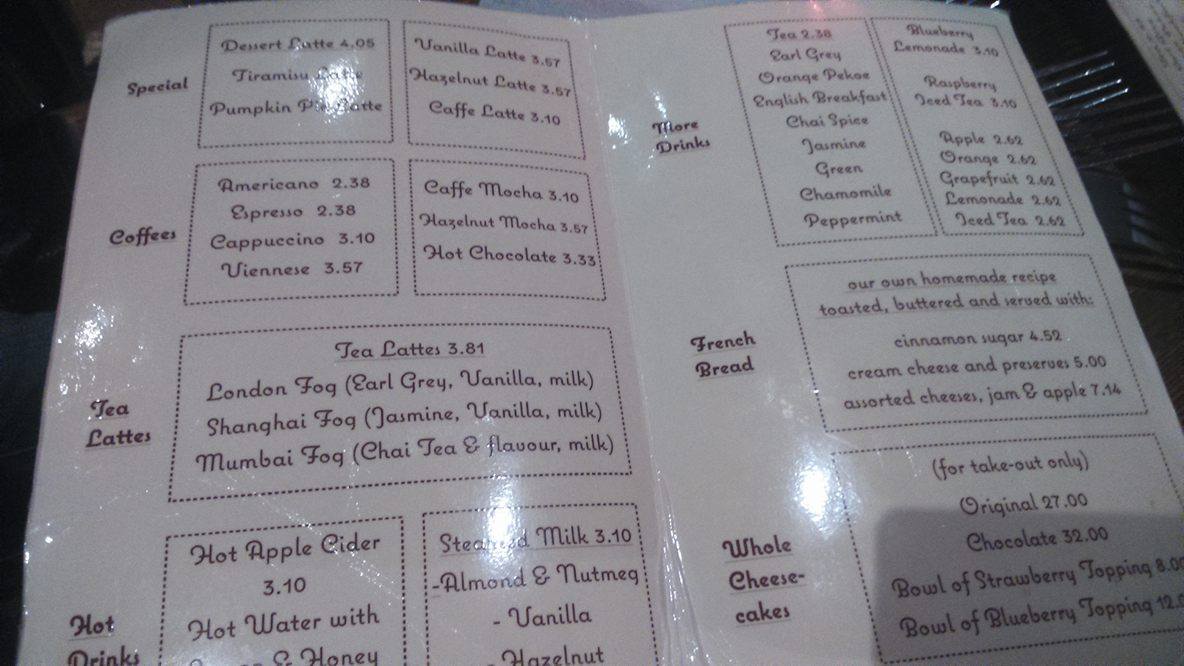 Special
Dessert Latte 4.05
Tiramisu Latte
Pumpkin Pie Latte
Vanilla Latte 3.57
Hazelnut Latte 3.57
Caffe Latte 3.10
Coffees
Americano 2.38
Espresso 2.38
Cappuccino 3.10
Viennese 3.57
Caffe Mocha 3.10
Hazelnut Mocha 3.57
Hot Chocolate 3.33
Tea
Lattes
Tea Lattes 3.81
London Fog (Earl Grey, Vanilla, milk)
Shanghai Fog (Jasmine, Vanilla, milk)
Mumbai Fog (Chai Tea & flavour, milk)
Hot
Drinks
Hot Apple Cider
3.10
Hot Water with
& Honey
Steamed Milk 3.10
-Almond & Nutmeg
- Vanilla
- Hazelnut
More
Drinks
Tea 2.38
Earl Grey
Orange Pekoe
English Breakfast
Chai Spice
Jasmine
Green
Chamomile
Peppermint
Blueberry
Lemonade 3.10
Raspberry
Iced Tea 3.10
Apple 2.62
Orange 2.62
Grapefruit 2.62
Lemonade 2.62
Iced Tea 2.62
French
Bread
our own homemade recipe
toasted, buttered and served with:
cinnamon sugar 4.52
cream cheese and preserves 5.00
assorted cheeses, jam & apple 7.14
Whole
Cheese-
cakes
(for take-out only)
Original 27.00
Chocolate 32.00
Bowl of Strawberry Topping 8.00
Bowl of Blueberry Topping